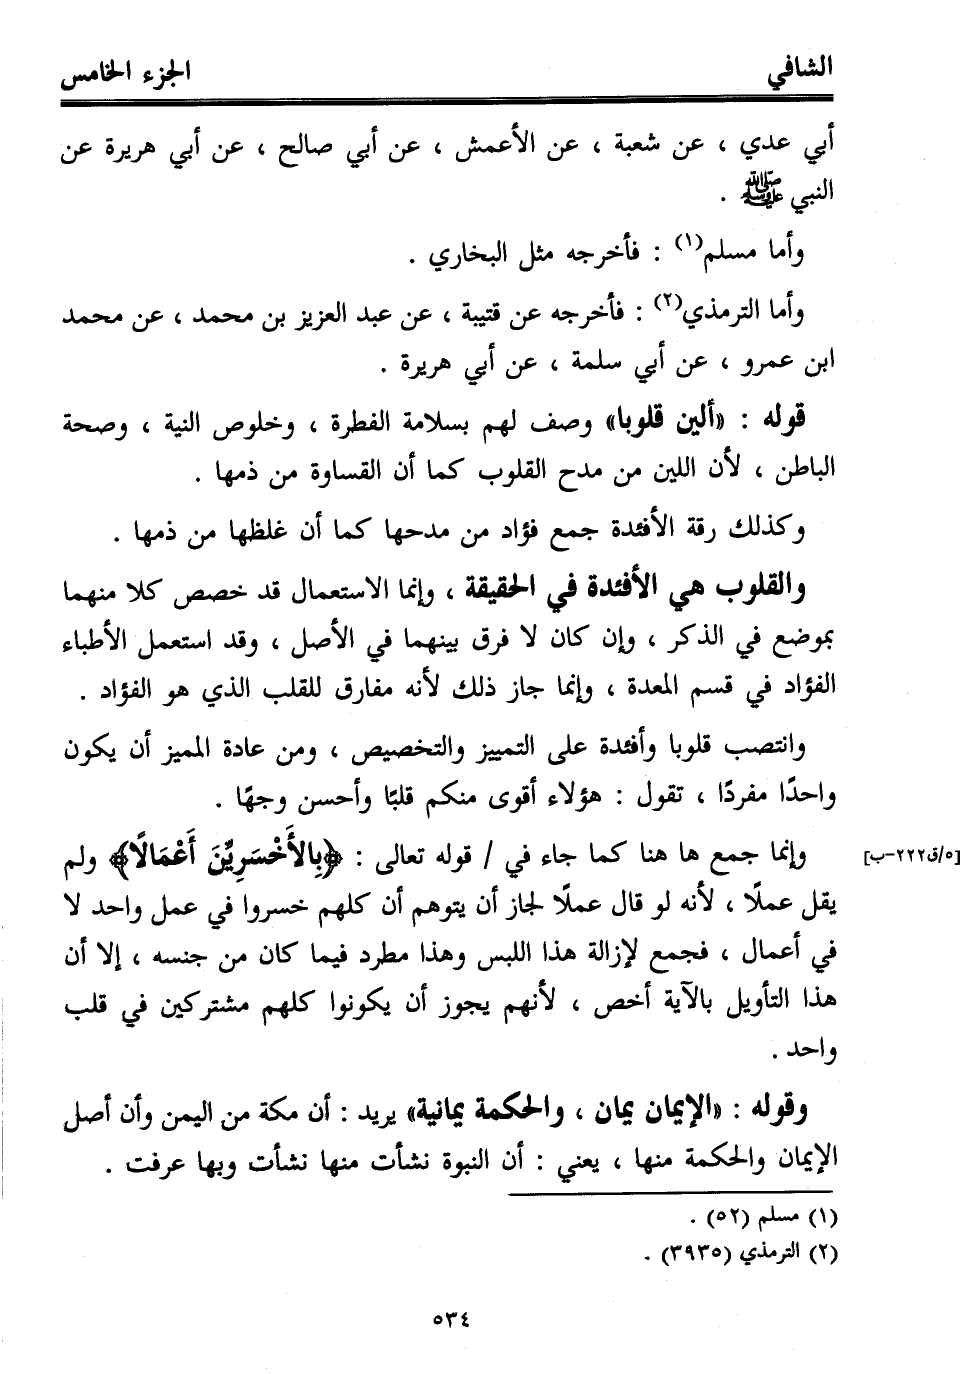 الشافي الجزء الخامس
أبي عدي ، عن شعبة ، عن الأعمش ، عن أبي صالح ، عن أبي هريرة عن
النبي ﷺ .
وأما مسلم(١) : فأخرجه مثل البخاري .
وأما الترمذي(٢) : فأخرجه عن قتيبة ، عن عبد العزيز بن محمد ، عن محمد
ابن عمرو ، عن أبي سلمة ، عن أبي هريرة .
قوله : «ألين قلوبا» وصف لهم بسلامة الفطرة ، وخلوص النية ، وصحة
الباطن ، لأن اللين من مدح القلوب كما أن القساوة من ذمها .
وكذلك رقة الأفئدة جمع فؤاد من مدحها كما أن غلظها من ذمها .
والقلوب هي الأفئدة في الحقيقة ، وإنما الاستعمال قد خصص كلا منهما
بموضع في الذكر ، وإن كان لا فرق بينهما في الأصل ، وقد استعمل الأطباء
الفؤاد في قسم المعدة ، وإنما جاز ذلك لأنه مفارق للقلب الذي هو الفؤاد .
وانتصب قلوبا وأفئدة على التمييز والتخصيص ، ومن عادة المميز أن يكون
واحدًا مفردًا ، تقول : هؤلاء أقوى منكم قلبًا وأحسن وجهًا .
وإنما جمع ها هنا كما جاء في / قوله تعالى : ﴿بِالأَخْسَرِينَ أَعْمَالًا﴾ ولم [٥/ق٢٢٢-ب]
يقل عملًا ، لأنه لو قال عملًا لجاز أن يتوهم أن كلهم خسروا في عمل واحد لا
في أعمال ، فجمع لإزالة هذا اللبس وهذا مطرد فيما كان من جنسه ، إلا أن
هذا التأويل بالآية أخص ، لأنهم يجوز أن يكونوا كلهم مشتركين في قلب
واحد .
وقوله : «الإيمان يمان ، والحكمة يمانية» يريد : أن مكة من اليمن وأن أصل
الإيمان والحكمة منها ، يعني : أن النبوة نشأت منها نشأت وبها عرفت .
(١) مسلم (٥٢) .
(٢) الترمذي (٣٩٣٥) .
٥٣٤